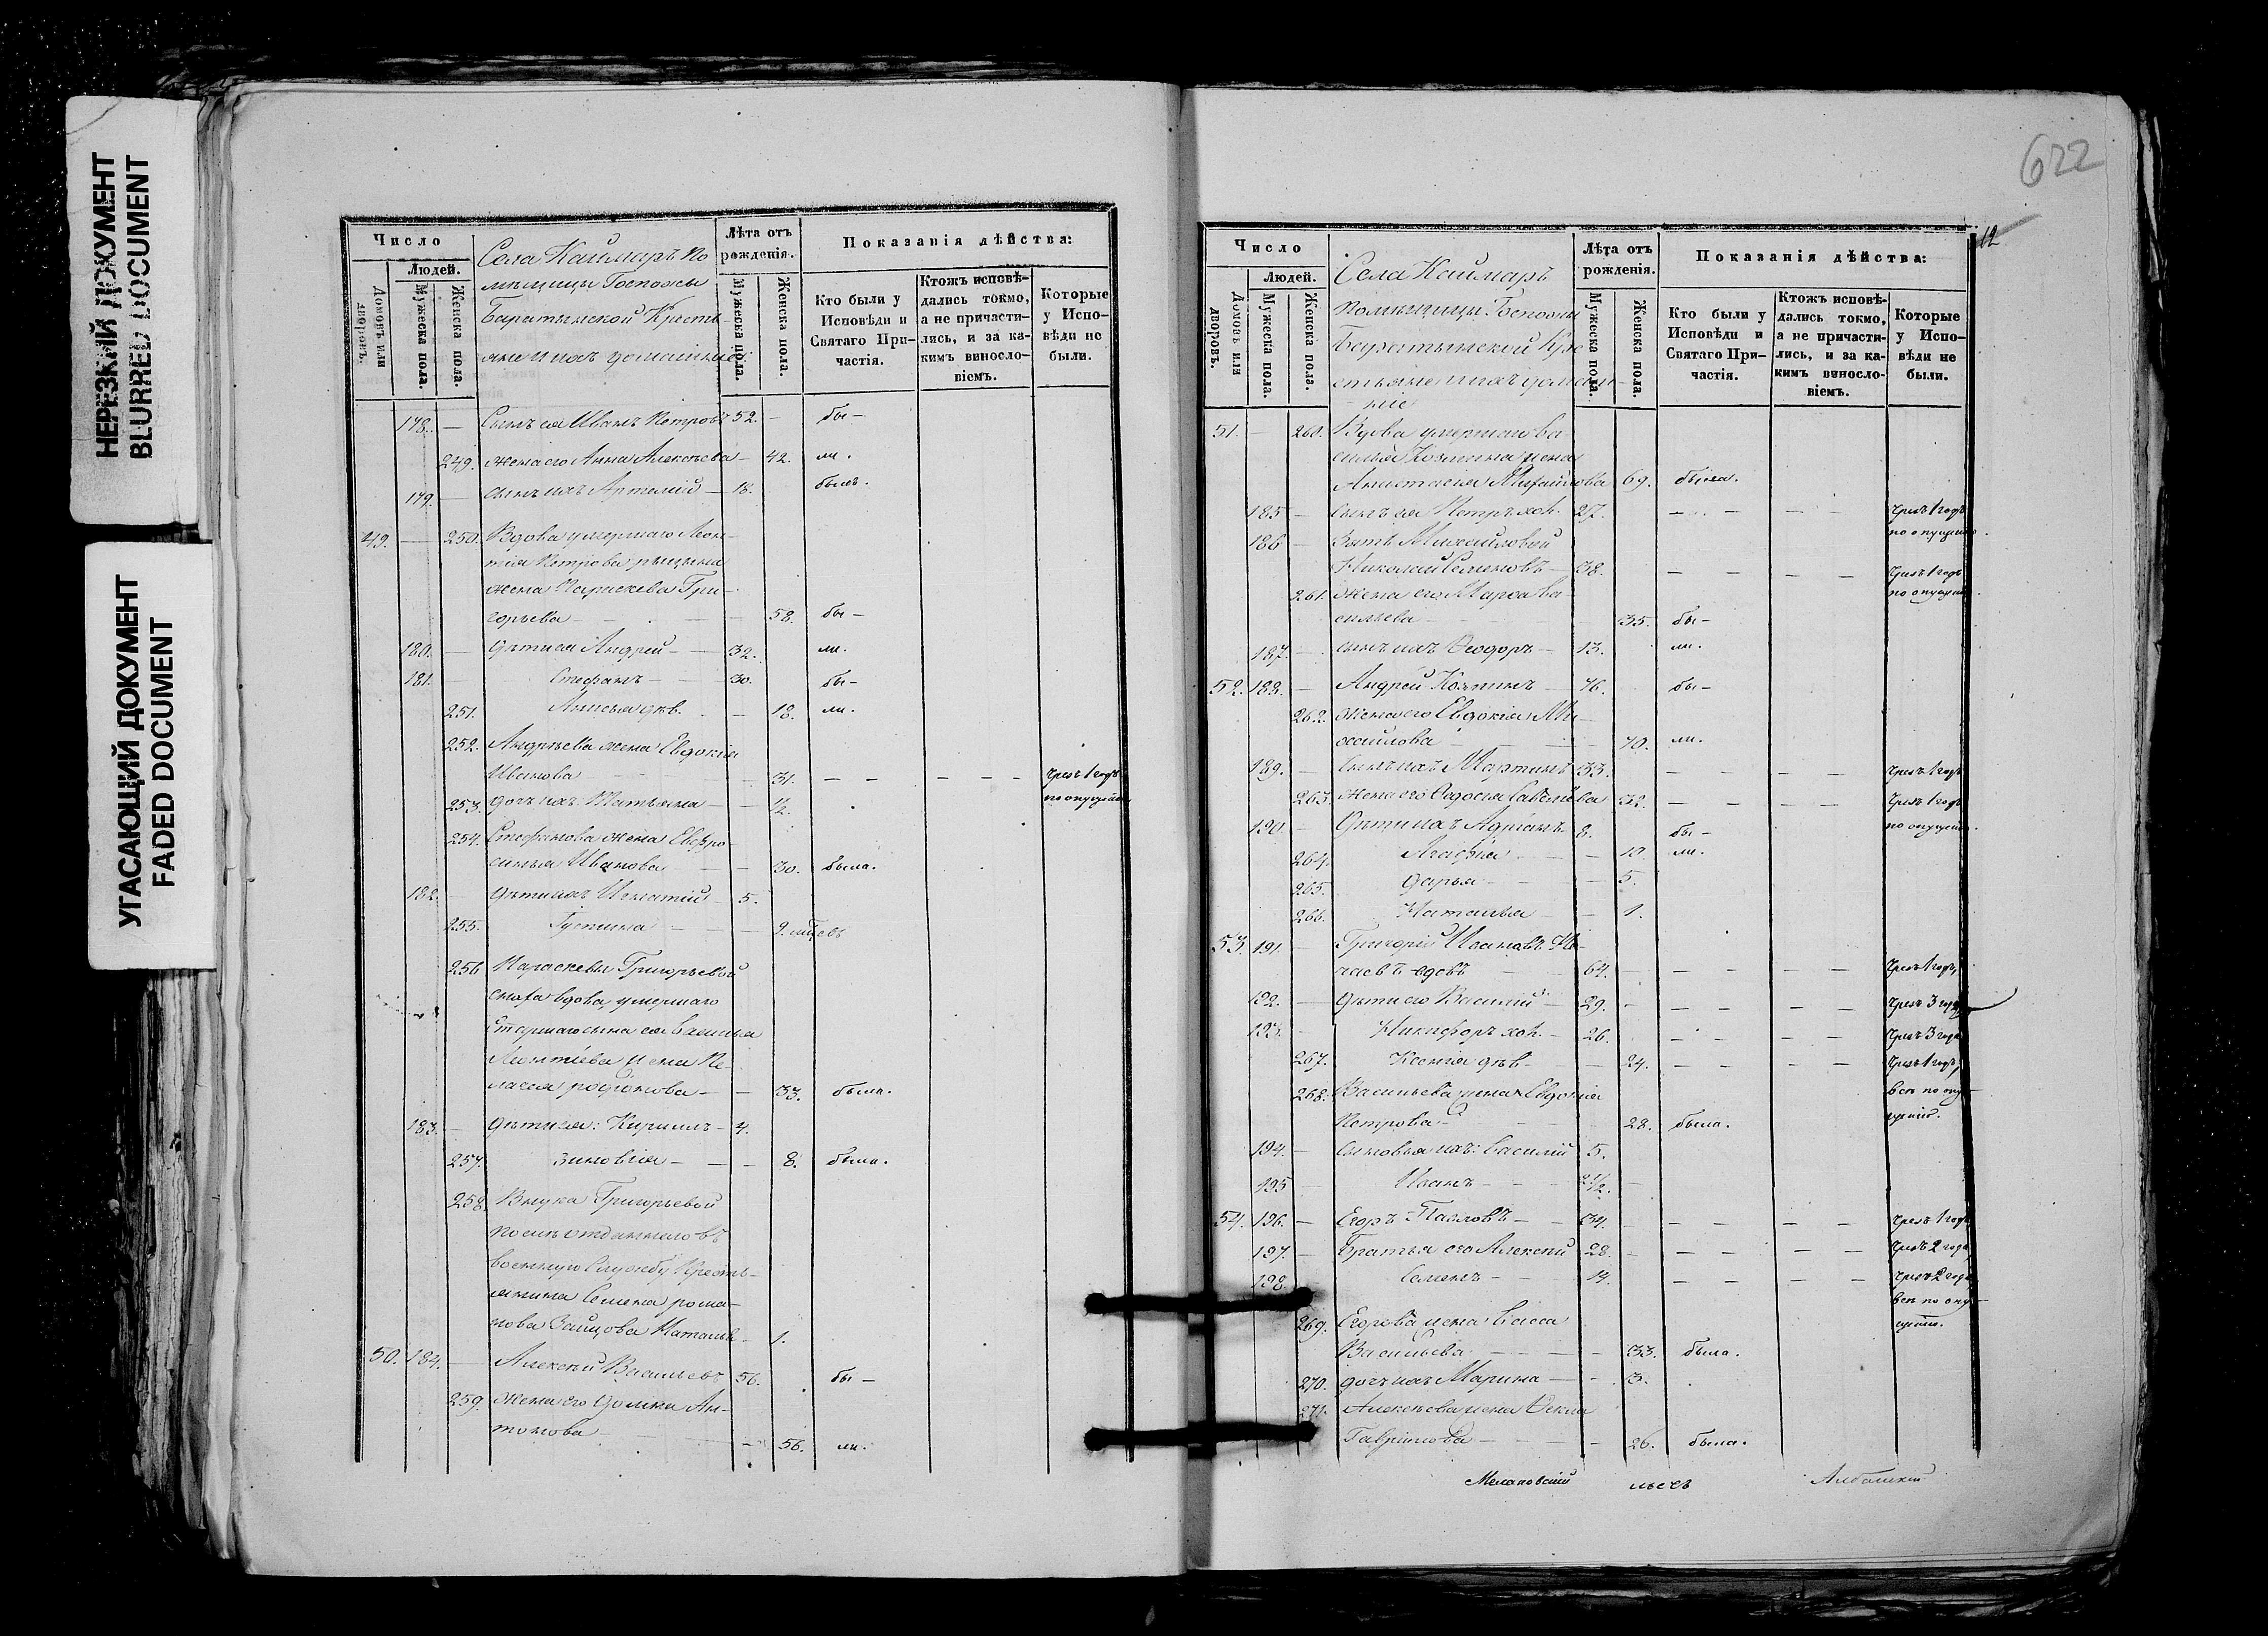 НЕРЕЗКИЙ ДОКУМЕНТ
BLURRED DOCUMENT
УГАСАЮЩИЙ ДОКУМЕНТ
FADED DOCUMENT
Число
Людей.
Домовъ или дворовъ.
Мужеска пола.
Женска пола.
Села Каймаръ По
мѣщицы Госпожи
Баратынской Кресть-
яне и ихъ домашніе:
Лѣта отъ рожденія.
Мужеска пола.
Женска пола.
Показанія дѣйства:
Кто были у Исповѣди и Святаго Причастія.
Ктожъ исповѣдались токмо, а не причастились, и за какимъ винословіемъ.
Которые у Исповѣди не были.
178. — Сынъ ея Иванъ Петровъ 52. — бы —
249. жена его Анна Алексѣева — 42. ли.
179. — сынъ ихъ Артемій — 18. былъ.
49. — 250. Вдова умершаго Леон-
тія Петрова
жена Параскева Гри-
горьева — 58. бы —
180. — Дѣти ея Андрей — 32. ли.
181. Стефанъ — 30. бы —
251. Анисья дѣв. — 18. ли.
252. Андреева жена Евдокія
Иванова — 31. — — — — — чрезъ 1 годъ
253. дочь ихъ Татьяна — ½. по опущенію
254. Стефанова жена Евфро
синья Иванова — 30. была.
182. — Дѣти ихъ Игнатій — 5.
255. Густина — 9. мцовъ
256 Параскевы Григорьевой
сноха вдова, умершаго
Старшаго сына ея Василья
Леонтіева жена Пе-
лагея родіонова — 33. была.
183. — Дѣти ея: Кириллъ — 4.
257. Зиновія — 8. была.
258. Внука Григорьевой
по сынѣ отданнаго въ
военную Службу Кресть-
янина Семена рома-
нова Зайцова Наталья — 1.
50. 184. — Алексѣй Васильевъ 56. бы —
259. Жена его Домна Ан-
тонова — 56. ли.
622
12
Число
Людей.
Домовъ или дворовъ.
Мужеска пола.
Женска пола.
Села Каймаръ
Помѣщицы Госпожи
Баратынской Кре
стьяне и ихъ домаш-
ніе
Лѣта отъ рожденія.
Мужеска пола.
Женска пола.
Показанія дѣйства:
Кто были у Исповѣди и Святаго Причастія.
Ктожъ исповѣдались токмо, а не причастились, и за какимъ винословіемъ.
Которые у Исповѣди не были.
51. — 260. Вдова умершаго Ва
силья Козмина жена
Анастасія Михайлова 69. была.
185 — сынъ ея Петръ хол. 27. — — — — чрезъ 1 годъ
по опущенію.
186 — Зять Михайловой
Николай Семеновъ — 38. — — — — чрезъ 1 годъ
по опущенію.
261. жена его Марфа Ва-
сильева 35. бы —
187. — сынъ ихъ Ѳеодоръ — 13. ли.
52. 188. — Андрей Козминъ — 76. бы —
262. жена его Евдокія Ми-
хайлова — 70. ли.
189. — Сынъ ихъ Мартинъ 33. — — — — чрезъ 1 годъ
263. жена его Ѳедосія Савельева 32. — — — — чрезъ 1 годъ
по опущенію.
190. — Дѣти ихъ Адріанъ 8. бы —
264. Агафія — 10 ли.
265. Дарья — 5.
266. Наталья — 1.
53. 191. — Григорій Ивановъ
вдовъ — 64. — — — — — чрезъ 1 годъ,
192. — Дѣти его Василій — 29. — — — — — чрезъ 3 года
193. — Никифоръ хол. — 26. — — — — чрезъ 3 года
267. Ксенія дѣв. — 24. — — — — чрезъ 1 годъ,
268. Васильева жена Евдокія всѣ по опу-
Петрова — 28. была. щенію.
194. — Сыновья ихъ: Василій 5.
195 Иванъ — 2½. —
54. 196. — Егоръ Павловъ — 34. — — — — — чрезъ 1 годъ
197. — Братья его Алексѣй 28. — — — — — чрезъ 2 года
198. Семенъ — 19. — — — — чрезъ 2 года
всѣ по опу-
щенію.
269. Егорова жена Васса
Васильева — 33. была.
270. дочь ихъ Марина — 3.
271. Алексѣева жена Ѳекла
Гаврилова — 26. была.